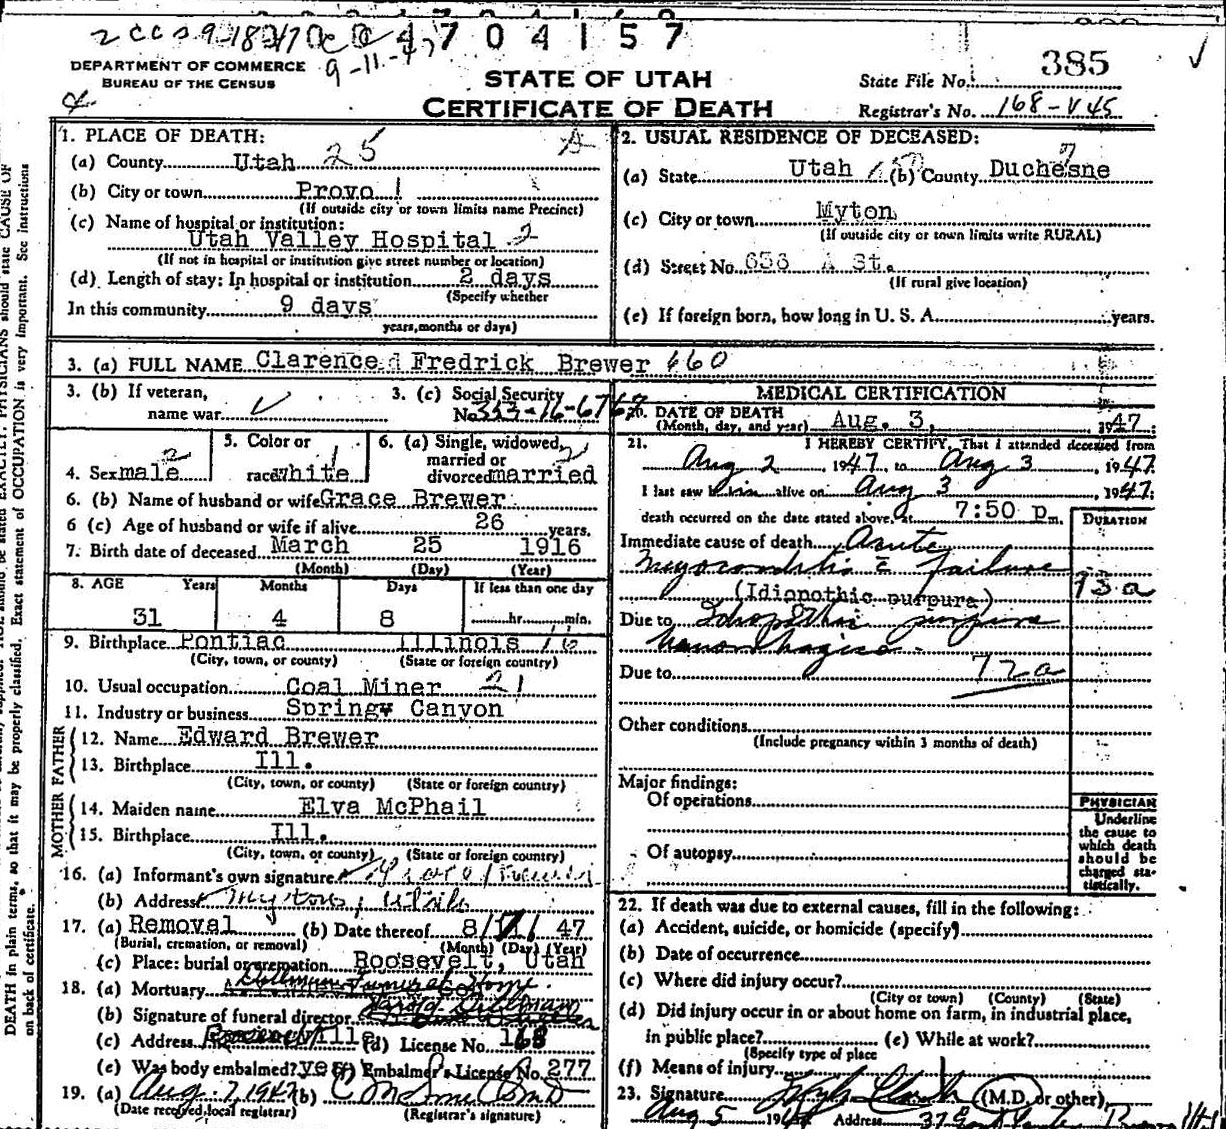 4704157
9-11-47
DEPARTMENT OF COMMERCE
BUREAU OF THE CENSUS
STATE OF UTAH
CERTIFICATE OF DEATH
State File No. 385
Registrar's No. 168-V45
1. PLACE OF DEATH:
(a) County Utah 25 A
(b) City or town Provo 1
(If outside city or town limits name Precinct)
(c) Name of hospital or institution:
Utah Valley Hospital 2
(If not in hospital or institution give street number or location)
(d) Length of stay: In hospital or institution 2 days
(Specify whether
In this community 9 days
years, months or days)
2. USUAL RESIDENCE OF DECEASED:
(a) State Utah (b) County Duchesne 7
(c) City or town Myton
(If outside city or town limits write RURAL)
(d) Street No. A St.
(If rural give location)
(e) If foreign born, how long in U. S. A. years.
3. (a) FULL NAME Clarence Fredrick Brewer 660
3. (b) If veteran,
name war
3. (c) Social Security
No. 353-16-6767
4. Sex male 2
5. Color or
race white 1
6. (a) Single, widowed,
married or
divorced married 2
6. (b) Name of husband or wife Grace Brewer
6 (c) Age of husband or wife if alive 26 years.
7. Birth date of deceased March 25 1916
(Month) (Day) (Year)
8. AGE Years Months Days If less than one day
31 4 8 hr. min.
9. Birthplace Pontiac Illinois 76
(City, town, or county) (State or foreign country)
10. Usual occupation Coal Miner 21
11. Industry or business Spring Canyon
FATHER
12. Name Edward Brewer
13. Birthplace Ill.
(City, town, or county) (State or foreign country)
MOTHER
14. Maiden name Elva McPhail
15. Birthplace Ill.
(City, town, or county) (State or foreign country)
16. (a) Informant's own signature Grace Brewer
(b) Address Myton, Utah
17. (a) Removal (b) Date thereof 8/ 7 / 47
(Burial, cremation, or removal) (Month) (Day) (Year)
(c) Place: burial or cremation Roosevelt, Utah
18. (a) Mortuary Funeral Home
(b) Signature of funeral director
(c) Address (d) License No. 168
(e) Was body embalmed? yes (f) Embalmer's License No. 277
19. (a) Aug. 7, 1947 (b)
(Date received local registrar) (Registrar's signature)
MEDICAL CERTIFICATION
20. DATE OF DEATH
(Month, day, and year) Aug. 3, 1947.
21. I HEREBY CERTIFY, That I attended deceased from
Aug 2, 1947, to Aug 3, 1947.
I last saw him alive on Aug 3, 1947:
death occurred on the date stated above, at 7:50 p.m.
DURATION
Immediate cause of death Acute
Myocarditis c̄ failure
(Idiopothic purpura) 93a
Due to Idiopathic purpura
hemorrhagica.
Due to 72a
Other conditions
(Include pregnancy within 3 months of death)
Major findings:
Of operations
Of autopsy
PHYSICIAN
Underline
the cause to
which death
should be
charged sta-
tistically.
22. If death was due to external causes, fill in the following:
(a) Accident, suicide, or homicide (specify)
(b) Date of occurrence
(c) Where did injury occur?
(City or town) (County) (State)
(d) Did injury occur in or about home on farm, in industrial place,
in public place? (e) While at work?
(Specify type of place
(f) Means of injury
23. Signature (M.D. or other)
Aug 5 194 Address
DEATH in plain terms, so that it may be properly classified. Exact statement of OCCUPATION is very important. See instructions
on back of certificate.